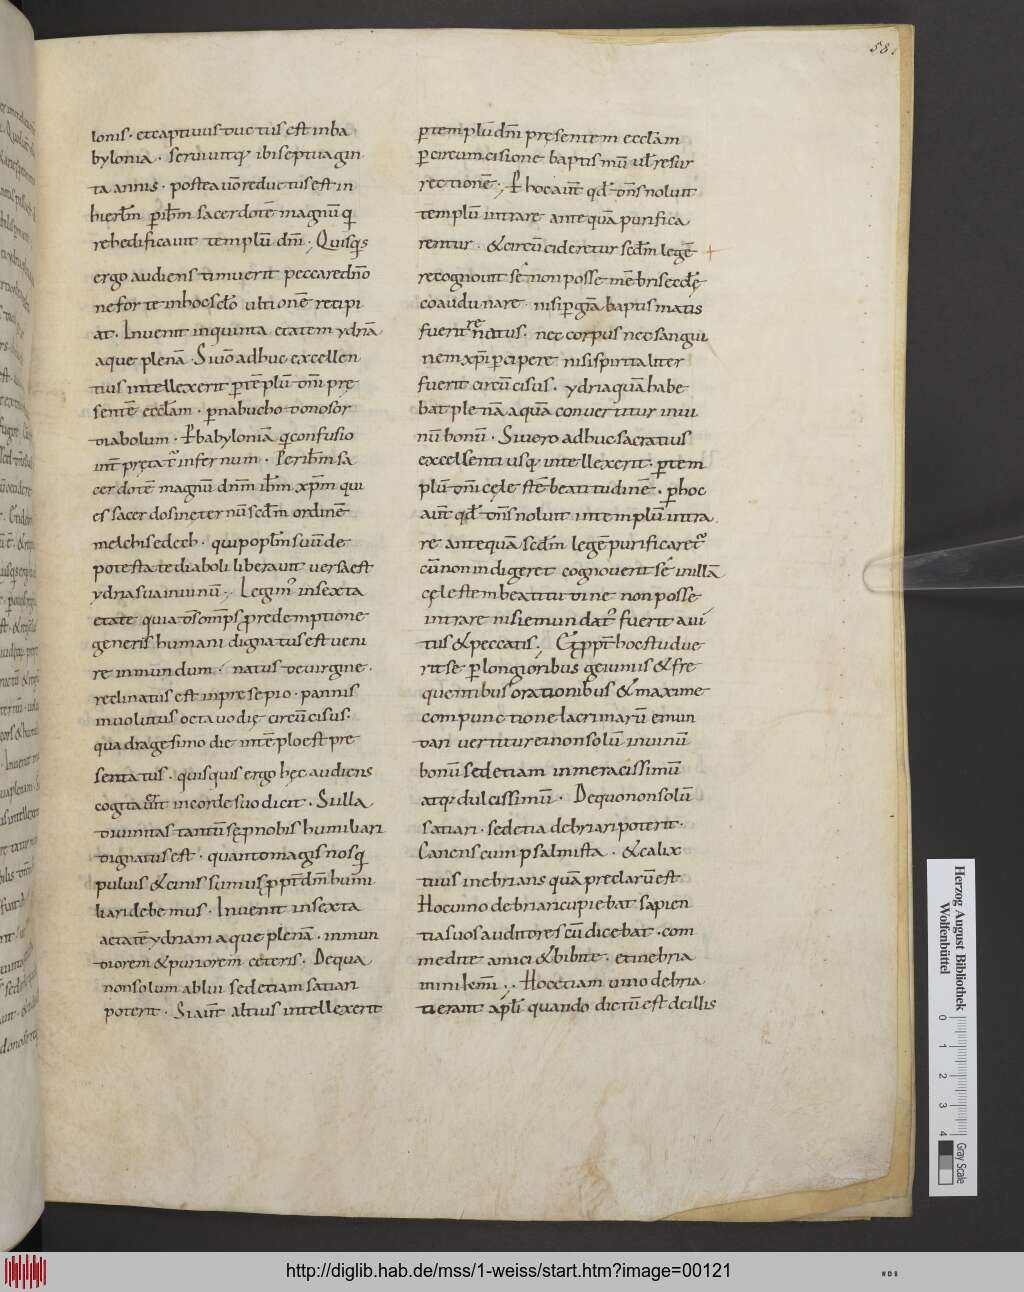 58
lonis · et captiuus ductus est in ba
bylonia · seruiuitq; ibi septuagin
ta annis · postea uo᷃ reductus est in
hierlm̄ ꝑ ihm̄ sacerdotē magnū q
rehedificauit templū dm̄i ·, Quisq;s
ergo audiens timuerit peccare dn̄o
ne forte in hoc scło ultionē recipi
at · Inuenit in quinta etatem ydriā
aque plenā · Si uo᷃ adhuc excellen
tius intellexerit ꝑ tēplū dn̄i pre
sentē ecclam · ꝑ nabuchodonosor
diabolum · ꝑ babyloniā q confusio
int̄ pretat᷑ infernum · Per ihm̄ sa
cerdotē magnū dnm̄ ihm̄ xpm̄ qui
es sacerdos in eternū scdm̄ ordinē
melchisedech · qui poplm̄ suū de
potestate diaboli liberauit uersa est
ydria sua in uinū ·, Legim᷒ in sexta
etate quia dn̄s om̄ps ꝓ redemptione
generis humani dignatus est ueni
re in mundum · natus de uirgine ·
reclinatus est in presepio · pannis
inuolutus octauo die circūcisus ·
quadragesimo die in tēplo est pre
sentatus · quisquis ergo hęc audiens
cogitauerit in corde suo dicit · Si illa
diuinitas tantū se ꝓ nobis humiliari
dignatus est · quanto magis nos q
puluis & cinis sumus ꝓpt̄ dm̄ humi
liari debemus · Inuenit in sexta
aetatē ydriam aque plenā · in mun
diorem & puriorem ceteris · De qua
non solum ablui sed etiam satiari
poterit · Si aut̄ altius intellexerit
ꝑ templū dm̄ pręsentem ecclam
ꝑ circumcisione baptismū ul resur
rectionē ·, ꝑ hoc aut̄ qd dn̄s noluit
templū intrare antequā purifica
rentur · & circūcideretur scdm̄ legē
recognouit se non posse mēbris eccłe
coadunare · nisi ꝑ gr̄a baptismatis
fuerit renatus · nec corpus nec sangui
nem xpi ꝑcipere nisi spiritaliter
fuerit circūcisus · ydria quā habe
bat plenā aquā conuertitur in ui
nū bonū · Si uero adhuc sacratius
excellentiusq; intellexerit · ꝑ tem
plū dn̄i cęlestē beatitudinē · ꝑ hoc
aut̄ qd dn̄s noluit in templū intra
re antequā scdm̄ legē purificaret᷑
cū non indigeret cognouerit se in illā
cęlestem beatitudine non posse
intrare nisi emundat᷒ fuerit a ui
tiis & peccatis ·, Qꝓpt̄ hoc studue
rit se ꝑ longioribus geiuniis & fre
quentibus orationibus & maxime
compunctione lacrimarū emun
dari uertitur ei non solū in uinū
bonū sed etiam in meracissimū
atq; dulcissimū · De quo non solū
satiari · sed etia debriari poterit ·
Canens cum psalmista · & calix
tuus inebrians quā preclarū est
Hoc uino debriari cupiebat sapien
tia suos auditores cū dicebat · com
medite amici & bibite · et inebria
mini kmi ·, Hoc etiam uino debria
ti erant apłi quando dictū est de illis
Herzog August Bibliothek
Wolfenbüttel
0 1 2 3 4
Gray Scale
http://diglib.hab.de/mss/1-weiss/start.htm?image=00121